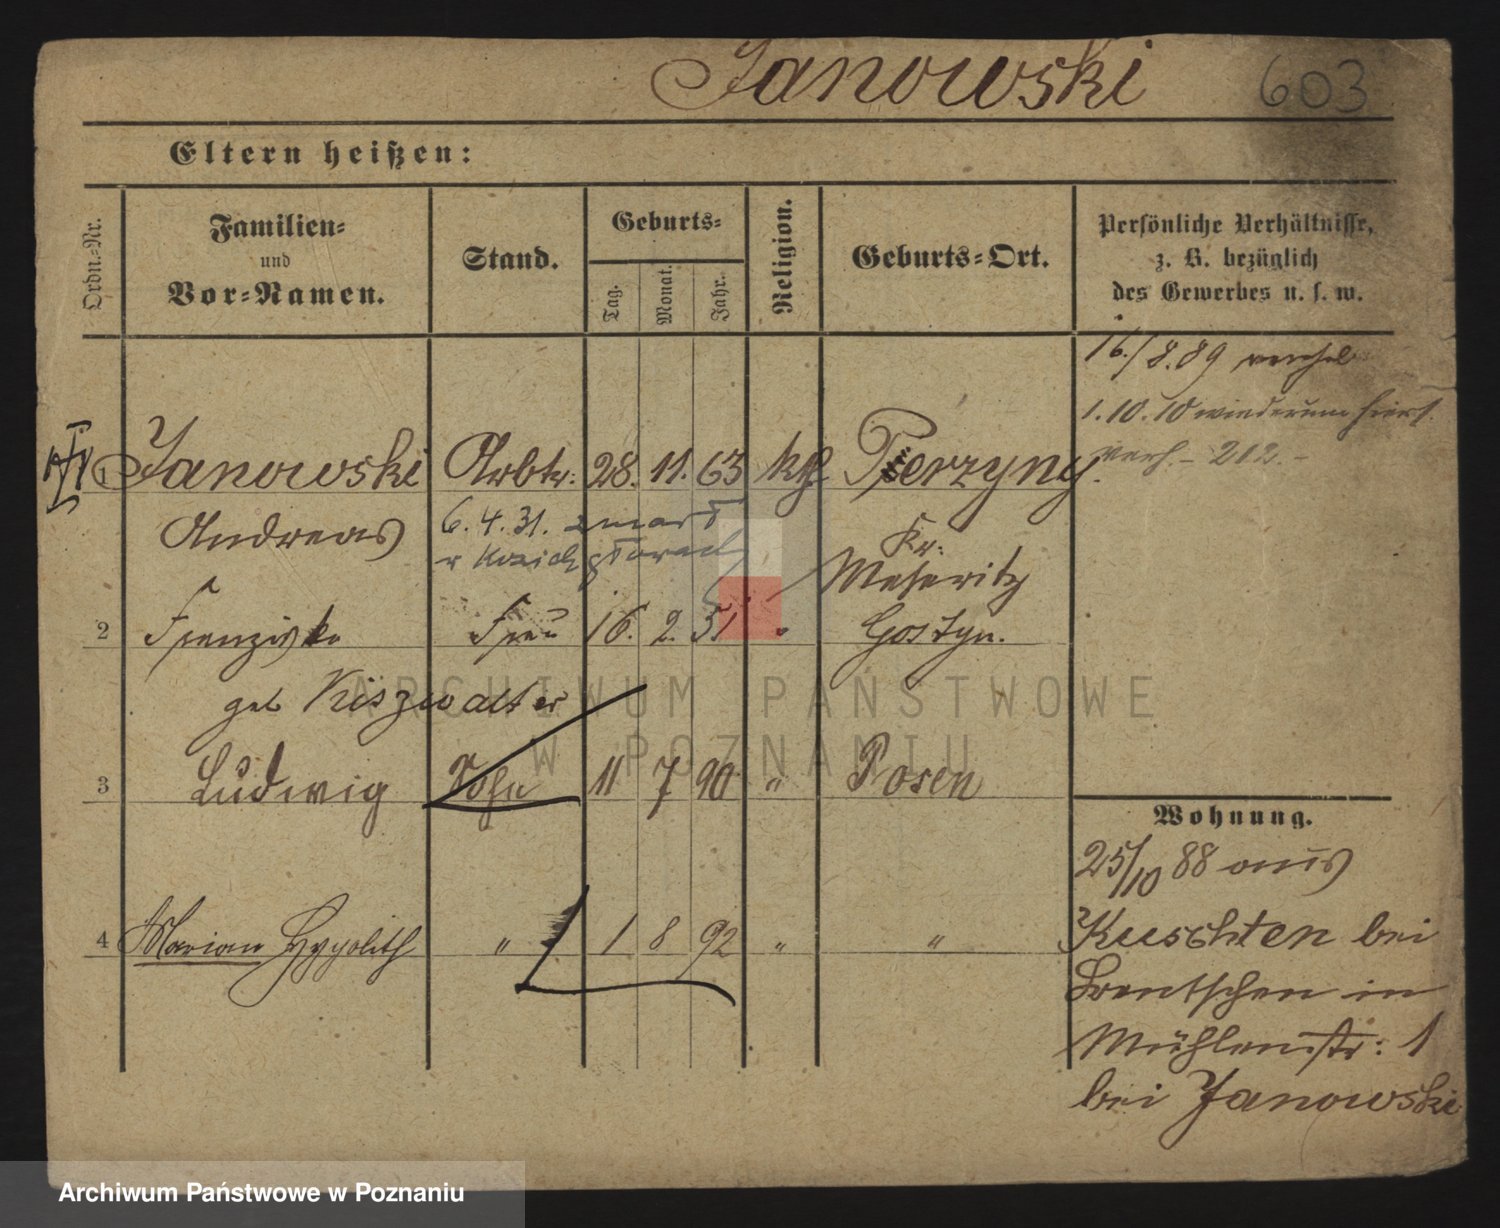 Janowski 603
Eltern heißen:
Ordn.-Nr.
Familien-
und
Vor-Namen.
Stand.
Geburts-
Tag. Monat. Jahr.
Religion.
Geburts-Ort.
Persönliche Verhältnisse,
z. B. bezüglich
des Gewerbes u. s. w.
16./8.89
1.10.10 wiederum hier
verh. - 212. -
1 Janowski Arbtr. 28. 11. 63 kth
Andreas 6.4.31. zmarł
Kr.
Meseritz
2 Franziska Frau 16. 2. 51 " Gostyn.
geb Kiszwalter
3 Ludwig Sohn 11 7 90 " Posen
4 Marian Hypolith " 1 8 92 " "
Wohnung.
25/10 88 aus
Kuschten bei
Bentschen in
Mühlenstr: 1
bei Janowski
ARCHIWUM PAŃSTWOWE
W POZNANIU
Archiwum Państwowe w Poznaniu